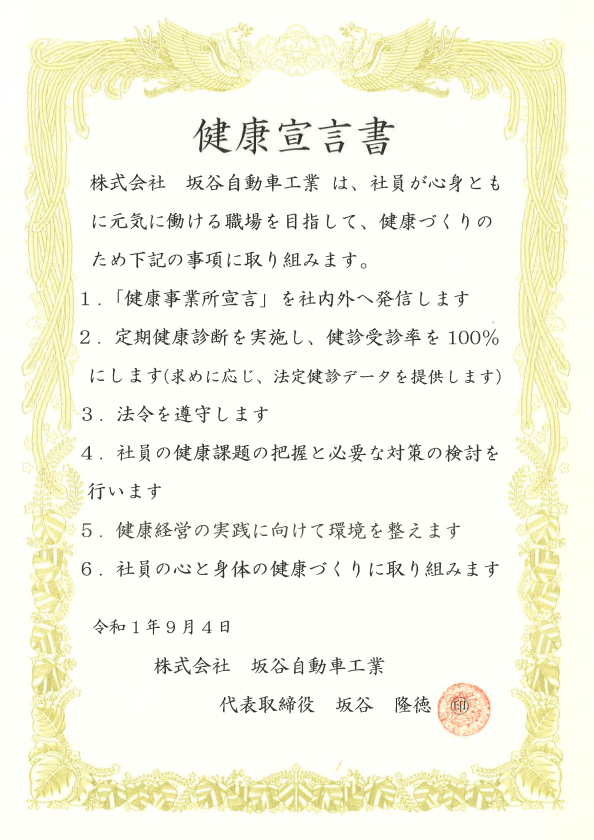 健康宣言書
株式会社　坂谷自動車工業 は、社員が心身とも
に元気に働ける職場を目指して、健康づくりの
ため下記の事項に取り組みます。
１．「健康事業所宣言」を社内外へ発信します
２．定期健康診断を実施し、健診受診率を 100%
にします(求めに応じ、法定健診データを提供します)
３．法令を遵守します
４．社員の健康課題の把握と必要な対策の検討を
行います
５．健康経営の実践に向けて環境を整えます
６．社員の心と身体の健康づくりに取り組みます
令和１年９月４日
株式会社　坂谷自動車工業
代表取締役　坂谷　隆徳 ㊞